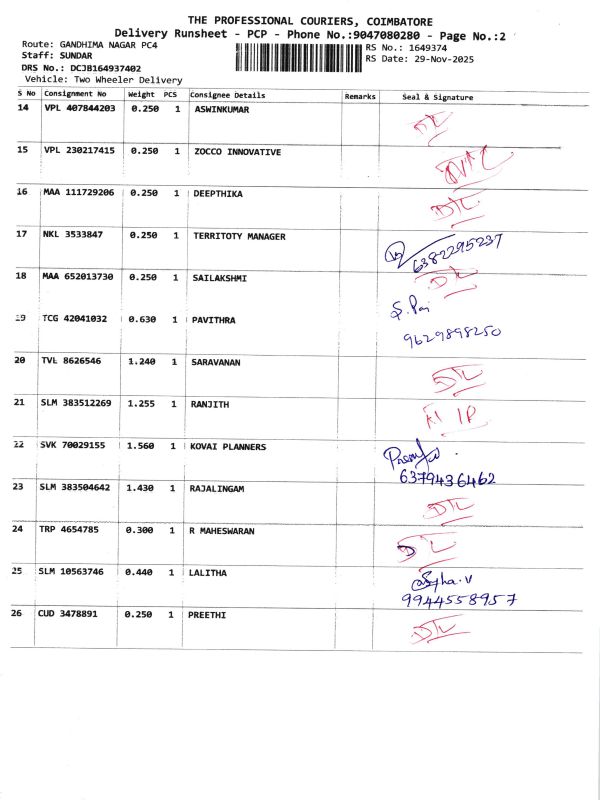 THE PROFESSIONAL COURIERS, COIMBATORE
Delivery Runsheet - PCP - Phone No.:9047080280 - Page No.:2
Route: GANDHIMA NAGAR PC4
Staff: SUNDAR
DRS No.: DCJB164937402
Vehicle: Two Wheeler Delivery
RS No.: 1649374
RS Date: 29-Nov-2025
S No Consignment No Weight PCS Consignee Details Remarks Seal & Signature
14 VPL 407844203 0.250 1 ASWINKUMAR
15 VPL 230217415 0.250 1 ZOCCO INNOVATIVE
16 MAA 111729206 0.250 1 DEEPTHIKA DTL
17 NKL 3533847 0.250 1 TERRITOTY MANAGER 6382295237
18 MAA 652013730 0.250 1 SAILAKSHMI DTL
19 TCG 42041032 0.630 1 PAVITHRA
9629898250
20 TVL 8626546 1.240 1 SARAVANAN DTL
21 SLM 383512269 1.255 1 RANJITH
22 SVK 70029155 1.560 1 KOVAI PLANNERS
6379436462
23 SLM 383504642 1.430 1 RAJALINGAM DTL
24 TRP 4654785 0.300 1 R MAHESWARAN DL
25 SLM 10563746 0.440 1 LALITHA
9944558957
26 CUD 3478891 0.250 1 PREETHI DTL